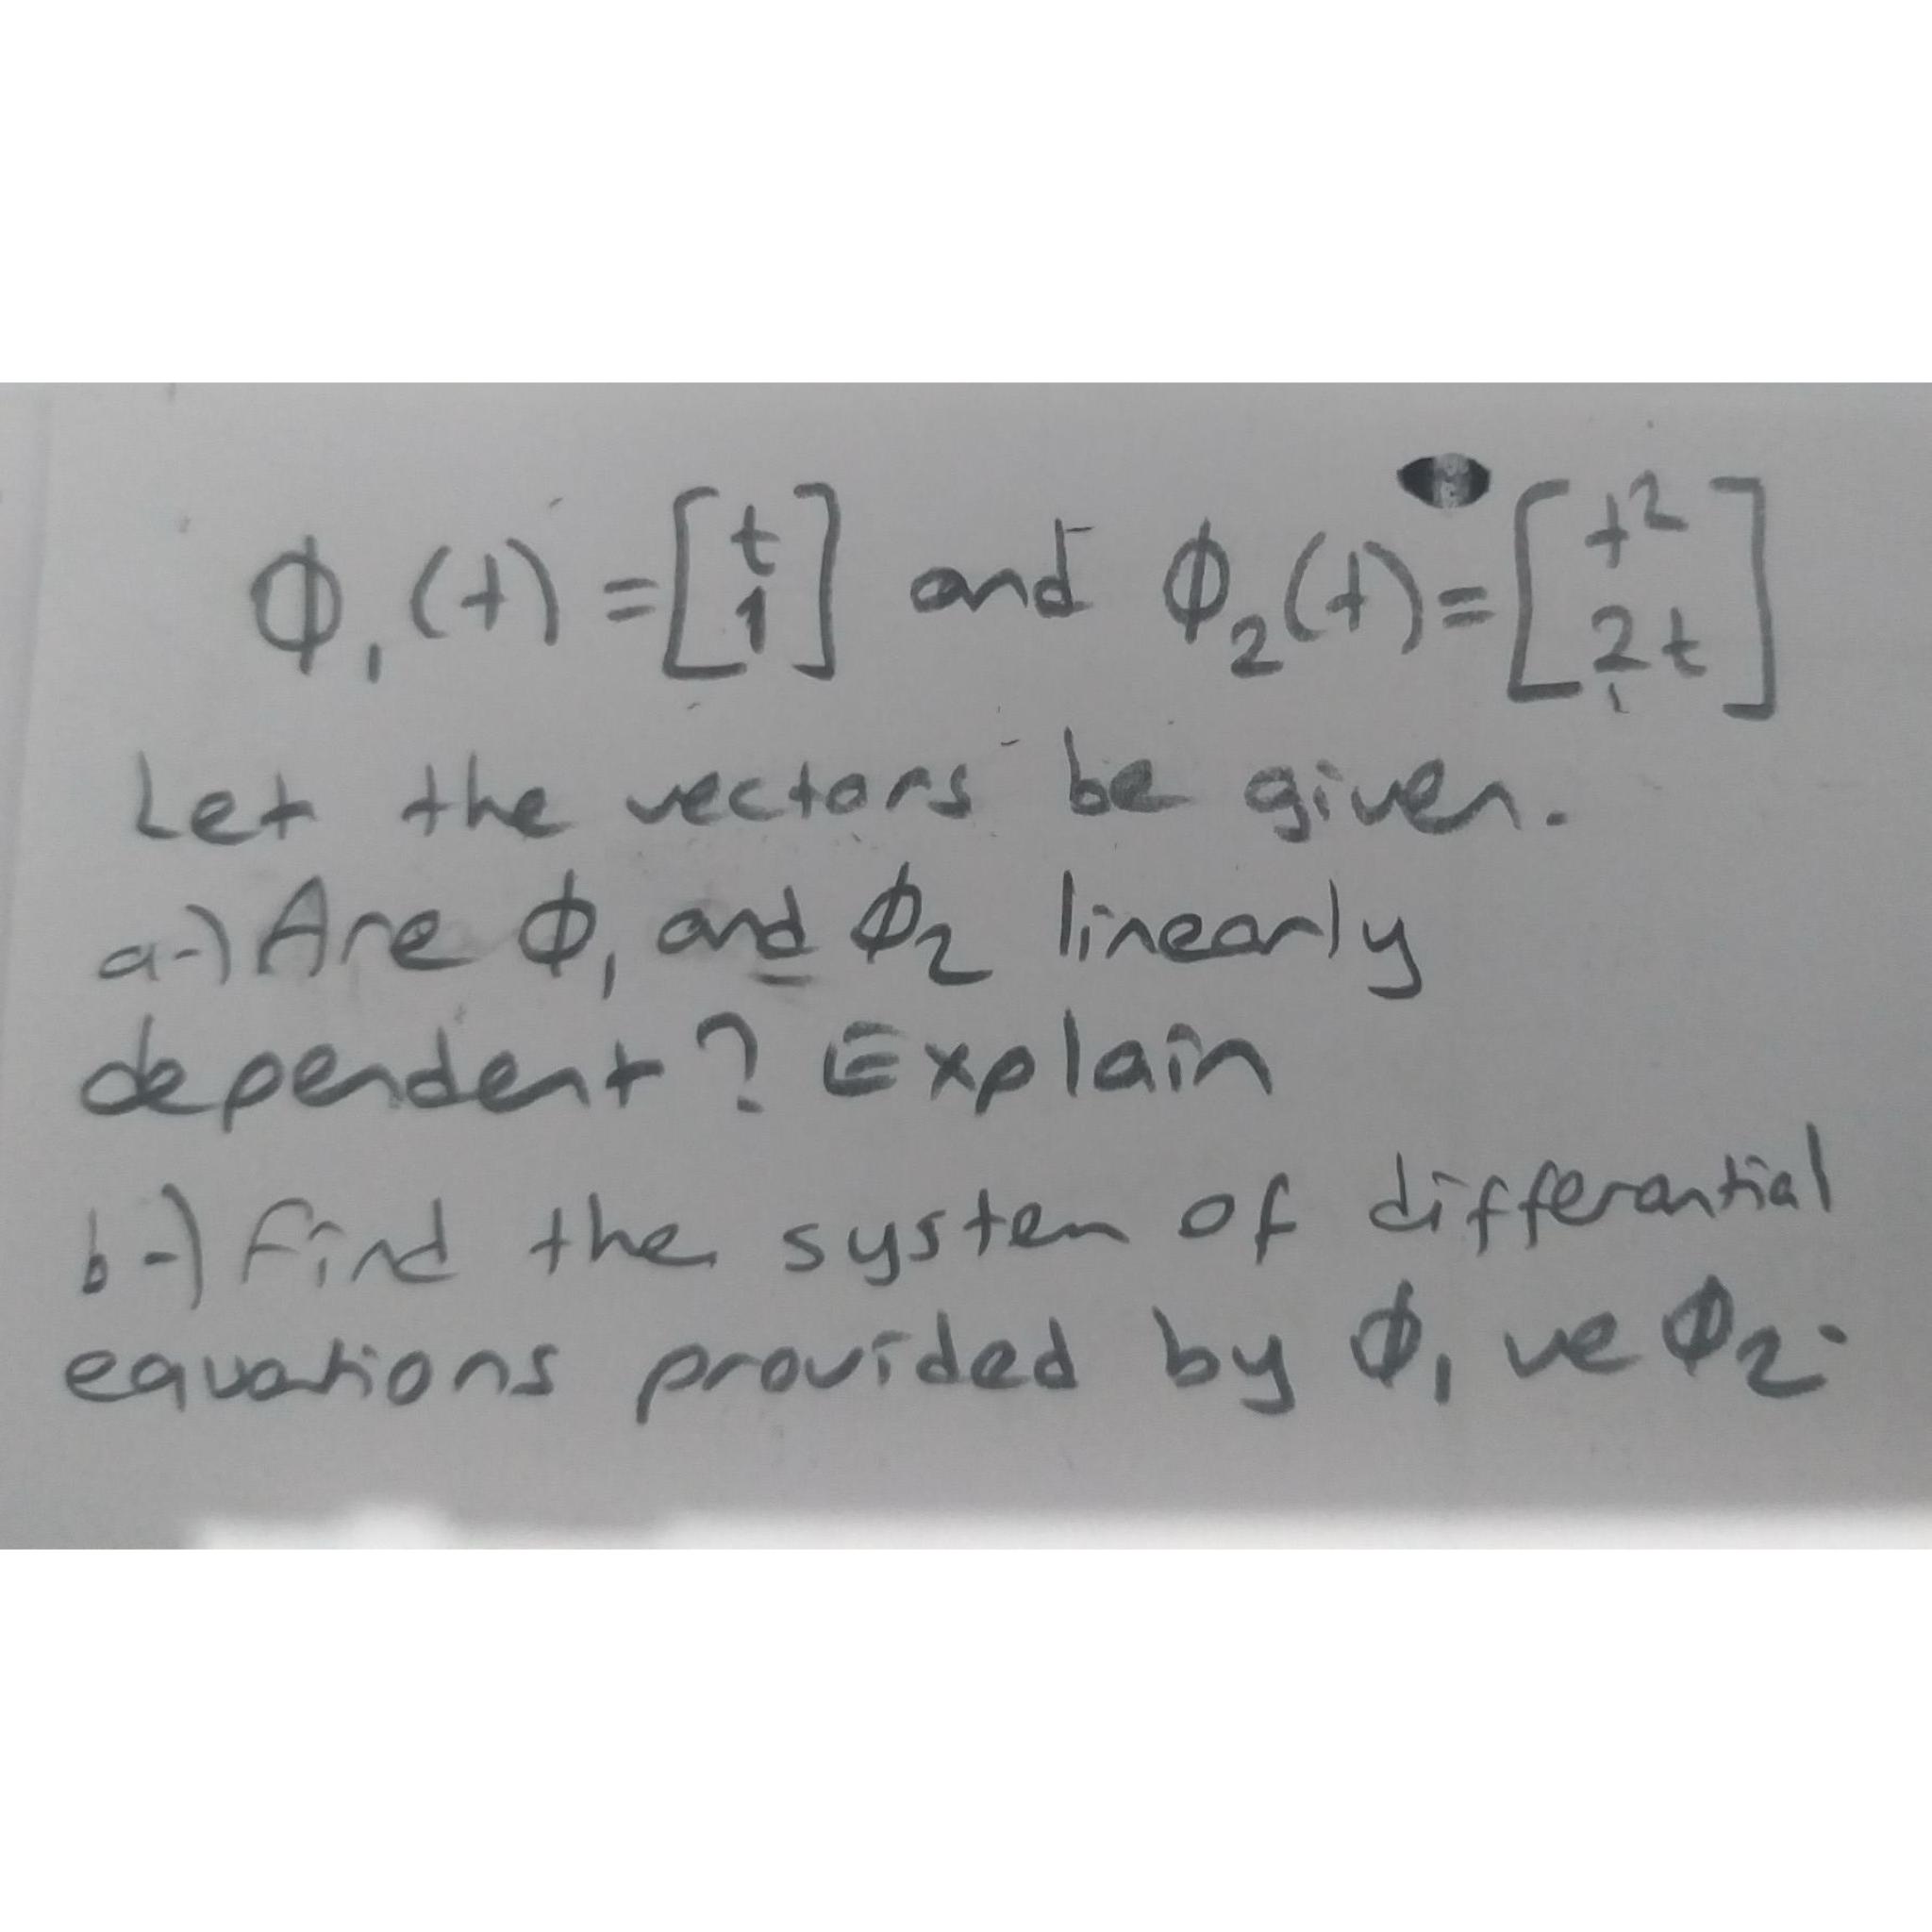 ϕ₁(t) = [t 1] and ϕ₂(t) = [t² 2t]
Let the vectors be given.
a-) Are ϕ₁ and ϕ₂ linearly
dependent? Explain
b-) Find the system of differantial
equations provided by ϕ₁ ve ϕ₂.